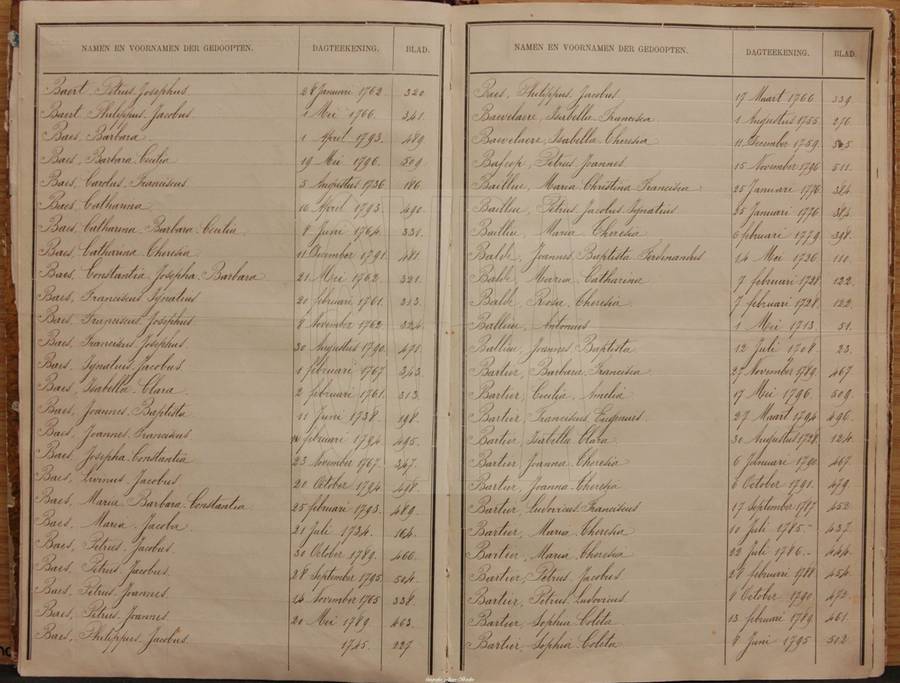 NAMEN EN VOORNAMEN DER GEDOOPTEN. DAGTEEKENING. BLAD.
Baert, Petrus Josephus 28 Januari 1762 320
Baert Philippus Jacobus 1 Mei 1766 341
Baes, Barbara 1 April 1793 489
Baes, Barbara Cecilia 19 Mei 1796 509
Baes, Carolus Franciscus 5 Augustus 1736 186
Baes Catharina 16 April 1793 490
Baes Catharina Barbara Cecilia 8 Juni 1764 331
Baes, Catharina Theresia 11 December 1791 481
Baes, Constantia Josepha Barbara 21 Mei 1762 321
Baes, Franciscus Ignatius 20 februari 1761 313
Baes, Franciscus Josephus 8 November 1762 324
Baes, Franciscus Josephus 30 Augustus 1790 471
Baes, Ignatius Jacobus 1 februari 1767 343
Baes, Isabella Clara 2 februari 1761 313
Baes, Joannes Baptista 11 Juni 1738 198
Baes, Joannes Franciscus 14 februari 1794 495
Baes, Josepha Constantia 23 November 1767 347
Baes, Livinus Jacobus 20 October 1794 498
Baes, Maria Barbara Constantia 25 februari 1793 489
Baes, Maria Jacoba 21 Juli 1734 164
Baes, Petrus Jacobus 30 October 1789 466
Baes, Petrus Jacobus 28 September 1795 504
Baes, Petrus Joannes 24 November 1765 338
Baes, Petrus Joannes 20 Mei 1789 463
Baes, Philippus Jacobus 1745 227
NAMEN EN VOORNAMEN DER GEDOOPTEN. DAGTEEKENING. BLAD.
Baes, Philippus Jacobus 17 Maart 1766 339
Baevelaere, Isabella Francisca 1 Augustus 1755 276
Baevelaere, Isabella Theresia 11 December 1759 305
Petrus Joannes 15 November 1796 511
Baillieu, Maria Christina Francisca 25 Januari 1776 384
Baillieu, Petrus Jacobus Ignatius 25 Januari 1776 384
Baillieu, Maria Theresia 6 februari 1779 398
Baldé, Joannes Baptista Ferdinandus 14 Mei 1736 110
Baldé, Maria Catharina 7 februari 1728 122
Baldé, Rosa Theresia 7 februari 1728 122
Ballieu, Antonius 1 Mei 1713 51
Ballieu, Joannes Baptista 12 Juli 1708 23
Bartier, Barbara Francisca 27 November 1789 467
Bartier, Cecilia Amelia 17 Mei 1796 509
Bartier, Franciscus 27 Maart 1794 496
Bartier, Isabella Clara 30 Augustus 1728 124
Bartier, Joanna Theresia 6 Januari 1790 467
Bartier, Joanna Theresia 6 October 1791 479
Bartier, Ludovicus Franciscus 17 September 1787 452
Bartier, Maria Theresia 10 Juli 1785 437
Bartier, Maria Theresia 22 Juli 1786 444
Bartier, Petrus Jacobus 28 februari 1788 454
Bartier, Petrus Ludovicus 9 October 1790 472
Bartier, Sophia Coleta 13 februari 1789 461
Bartier, Sophia Coleta 9 Juni 1795 502